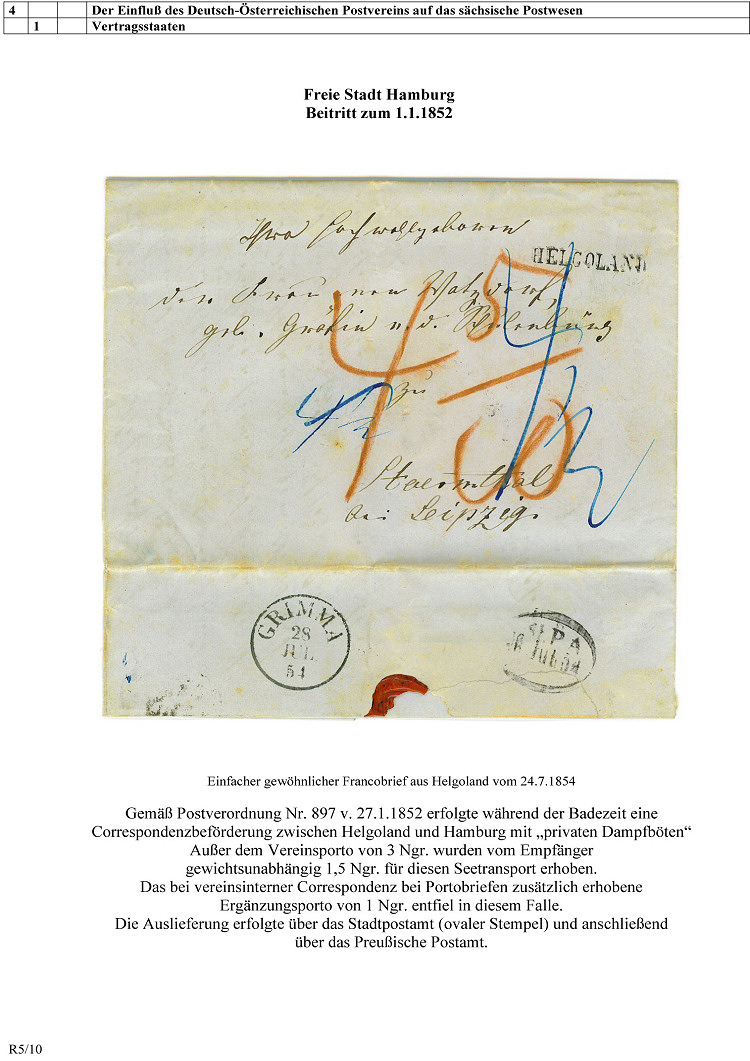 4 Der Einfluß des Deutsch-Österreichischen Postvereins auf das sächsische Postwesen
1 Vertragsstaaten
Freie Stadt Hamburg
Beitritt zum 1.1.1852
Hochwohlgeboren
HELGOLAND
der Frau von Watzdorf,
geb. Gräfin v. d. Schulenburg
4
5
zu
4 1/2
Stoermthal
bei Leipzig.
GRIMMA
28
JUL
54
St. P. A.
Einfacher gewöhnlicher Francobrief aus Helgoland vom 24.7.1854
Gemäß Postverordnung Nr. 897 v. 27.1.1852 erfolgte während der Badezeit eine
Correspondenzbeförderung zwischen Helgoland und Hamburg mit „privaten Dampfböten“
Außer dem Vereinsporto von 3 Ngr. wurden vom Empfänger
gewichtsunabhängig 1,5 Ngr. für diesen Seetransport erhoben.
Das bei vereinsinterner Correspondenz bei Portobriefen zusätzlich erhobene
Ergänzungsporto von 1 Ngr. entfiel in diesem Falle.
Die Auslieferung erfolgte über das Stadtpostamt (ovaler Stempel) und anschließend
über das Preußische Postamt.
R5/10